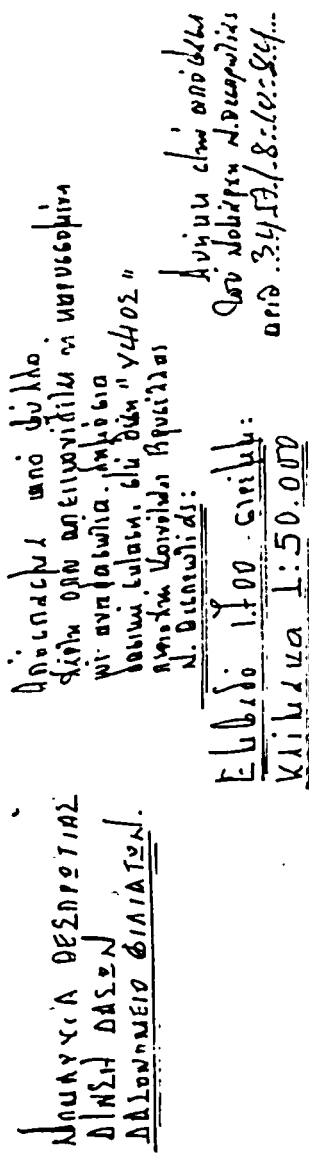 ΝΟΜΑΡΧΙΑ ΘΕΣΠΡΩΤΙΑΣ
Δ/ΝΣΗ ΔΑΣΩΝ
ΔΑΣΟΝΟΜΕΙΟ ΦΙΛΙΑΤΩΝ.
Απόσπασμα από φύλλο
χάρτου που απεικονίζεται η κηρυσσομένη
με αναδασωτέα δημόσια
δασική έκταση, στη θέση "
Κοινότητας
Ν. Θεσπρωτίας:
Εμβαδό 1.700 στρέμ:
Κλίμακα 1:50.000
απόφαση
του Νομάρχη Ν. Θεσπρωτίας
αριθ. 3457/8-10-84